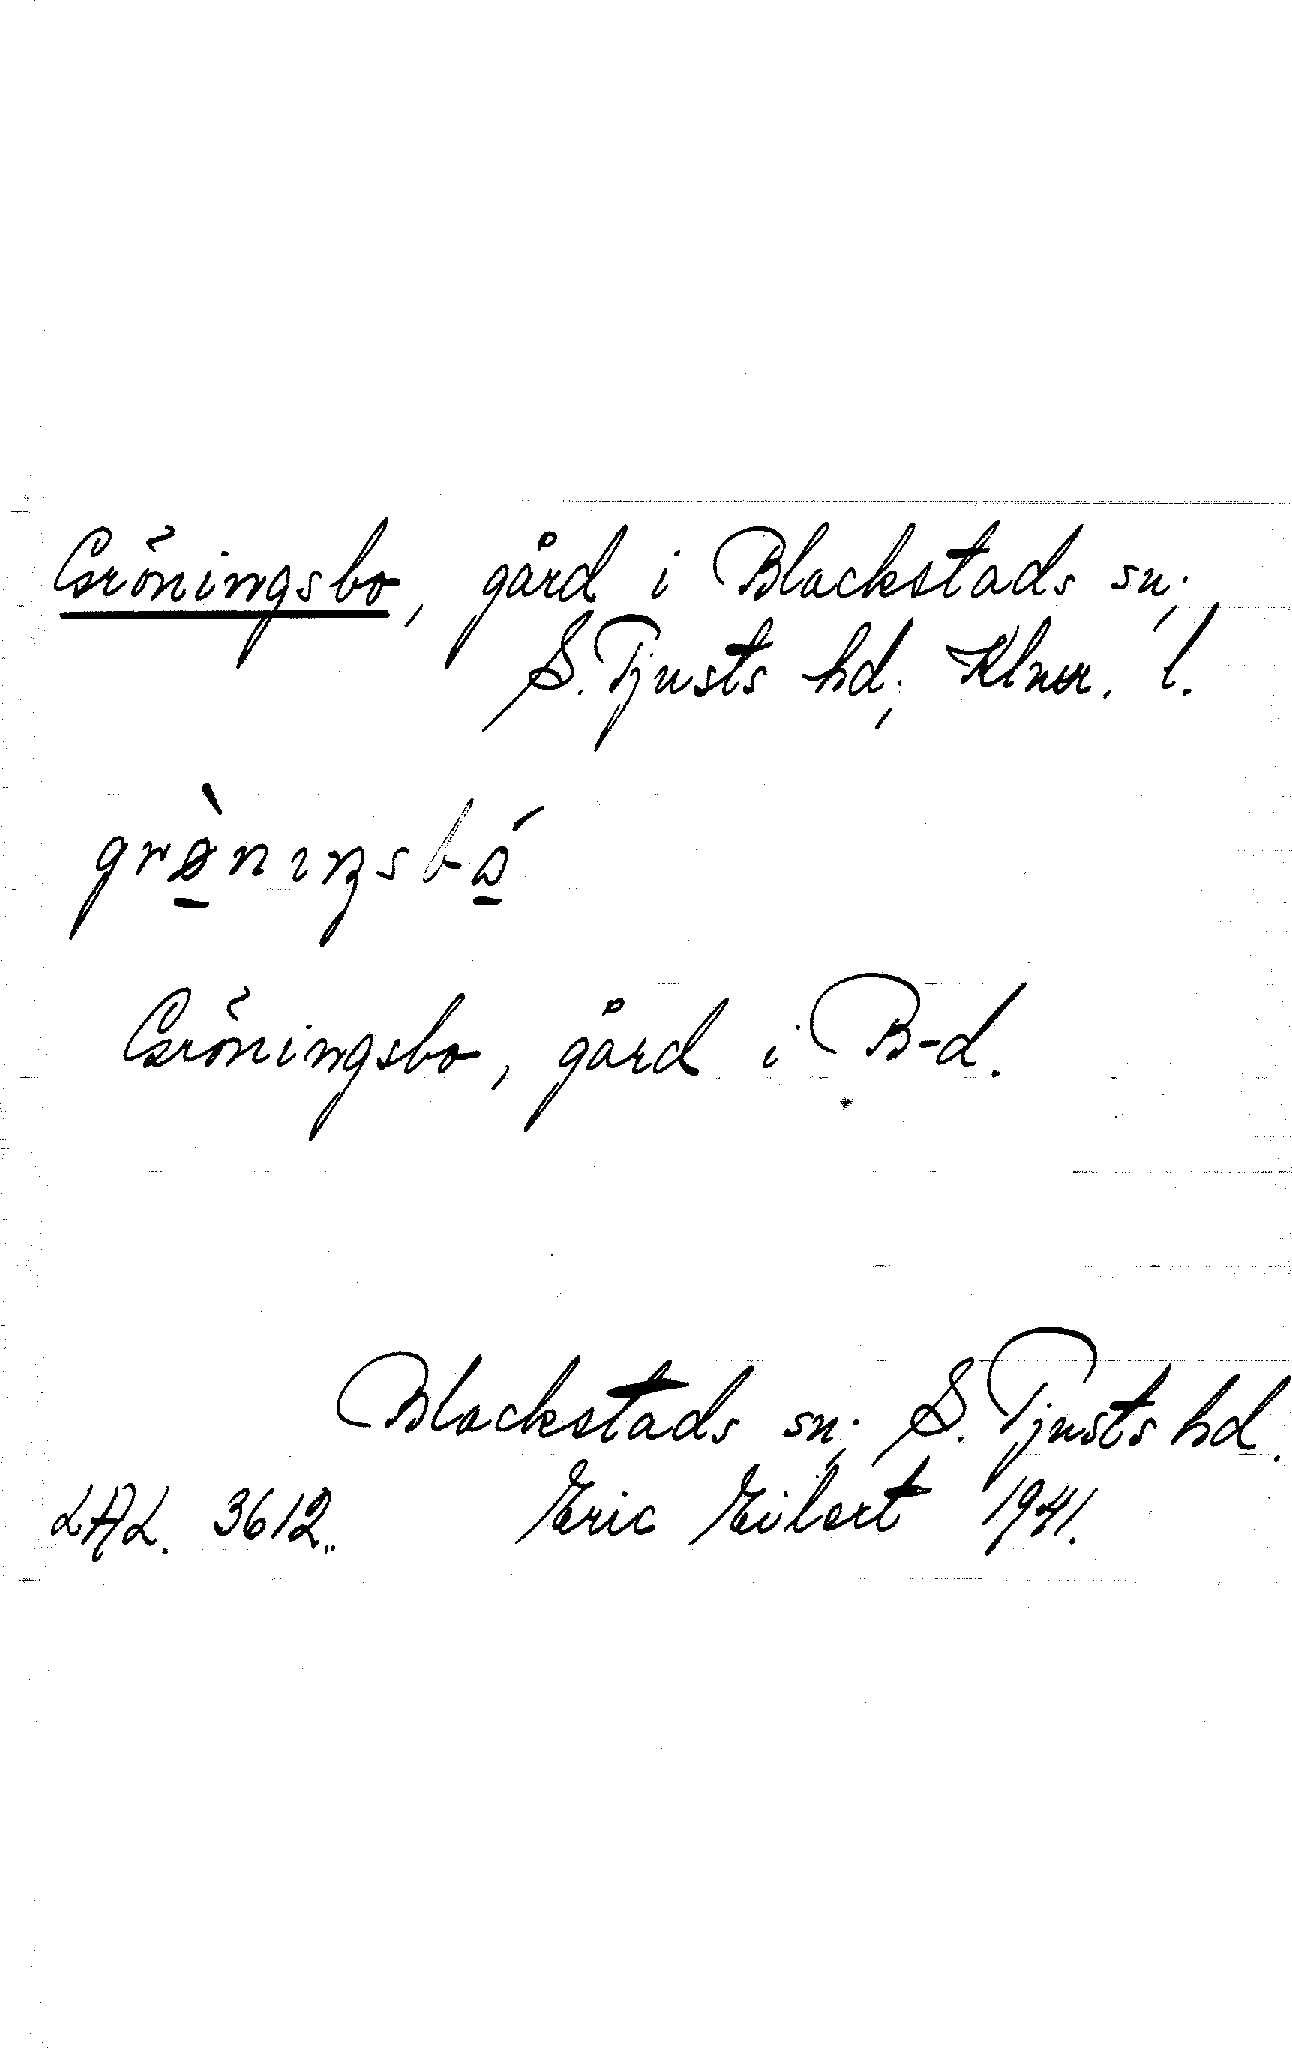 Gröningsbo, gård i Blackstads sn;
S. Tjusts hd; Klmr. l.
grø̱̀niŋsbó̱
Gröningsbo, gård i B-d.
Blackstads sn; S. Tjusts hd.
LAL. 3612. Eric Eilert 1941.